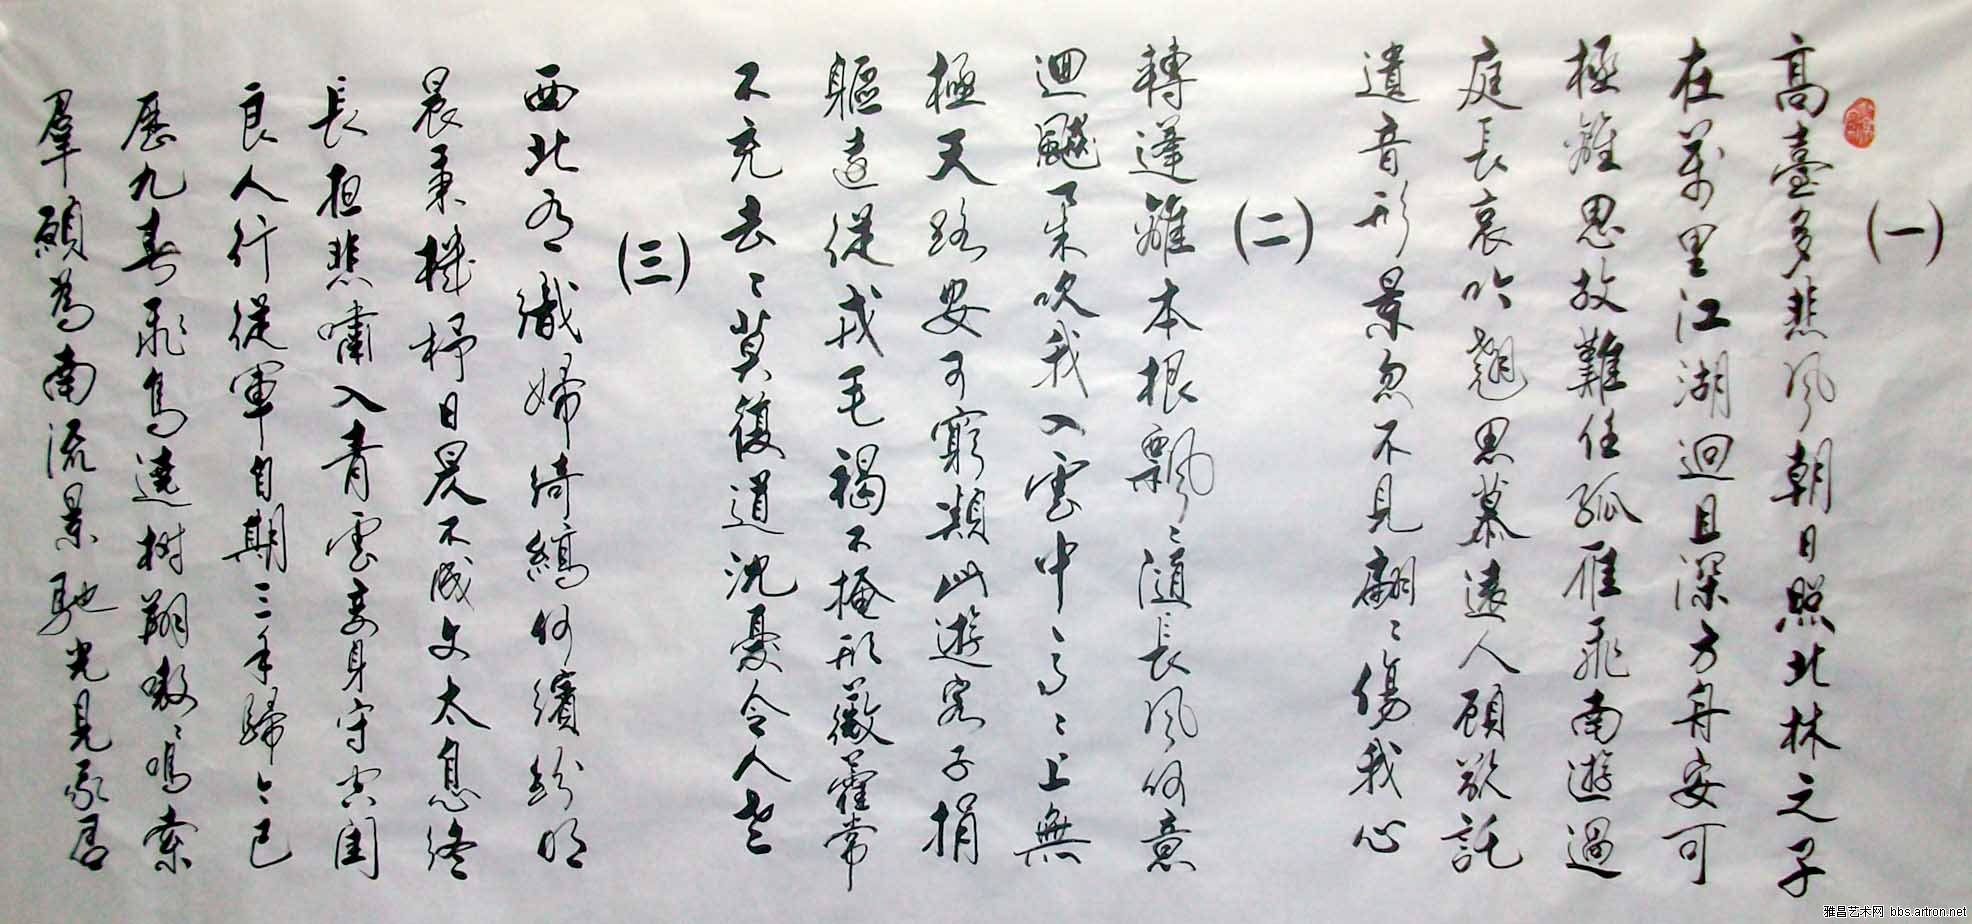 (一)
高臺多悲風朝日照北林之子
在萬里江湖迥且深方舟安可
極離思故難任孤雁飛南遊過
庭長哀吟翹思慕遠人願欲託
遺音形景忽不見翩〻傷我心
(二)
轉蓬離本根飄〻隨長風何意
迴飈舉吹我入雲中高〻上無
極天路安可窮類此遊客子捐
軀遠從戎毛褐不掩形薇藿常
不充去〻莫復道沈憂令人老
(三)
西北有織婦綺縞何繽紛明
晨秉機杼日昃不成文太息終
長夜悲嘯入青雲妾身守空閨
良人行從軍自期三年歸今已
歷九春飛鳥遶樹翔噭〻鳴索
羣願為南流景馳光見我君
雅昌艺术网 bbs.artron.net